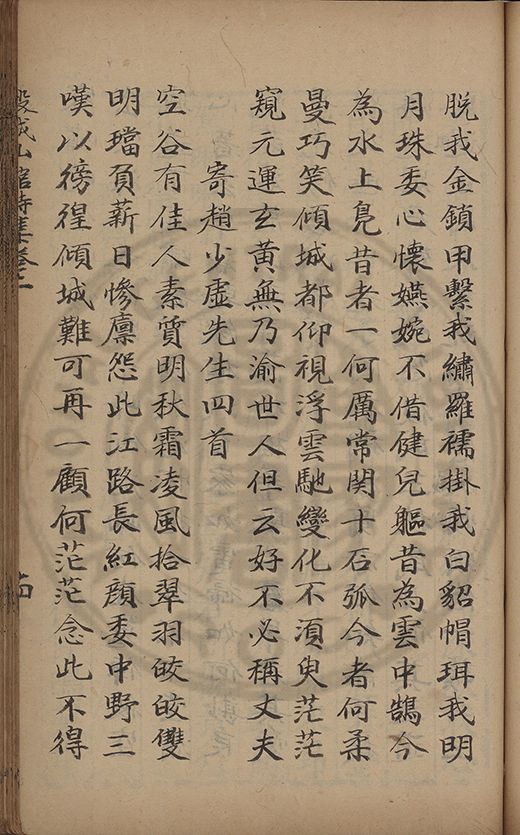 脱我金鎖甲繫我繡羅襦掛我白貂帽珥我明
月珠委心懷嬿婉不借健兒軀昔為雲中鵠今
為水上鳧昔者一何厲常関十石弧今者何柔
曼巧笑傾城都仰視浮雲馳變化不湏臾茫茫
窺元運玄黄無乃渝世人但云好不必稱丈夫
寄趙少虛先生四首
空谷有佳人素質明秋霜凌風拾翠羽皎皎雙
明璫頁薪日慘廪怨此江路長紅顔委中野三
嘆以徬徨傾城難可再一顧何茫茫念此不得
山舘詩集卷一